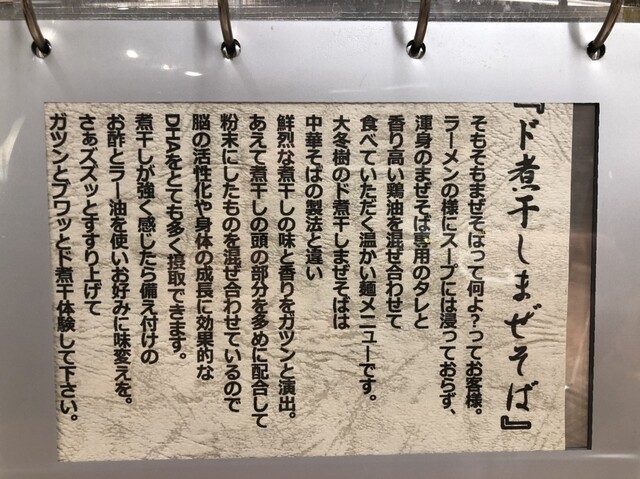 『ド煮干しまぜそば』
そもそもまぜそばって何よ？ってお客様。
ラーメンの様にスープには浸っておらず、
渾身のまぜそば専用のタレと
香り高い鶏油を混ぜ合わせて
食べていただく温かい麺メニューです。
大冬樹のド煮干しまぜそばは
中華そばの製法と違い
鮮烈な煮干しの味と香りをガツンと演出。
あえて煮干しの頭の部分を多めに配合して
粉末にしたものを混ぜ合わせているので
脳の活性化や身体の成長に効果的な
DHAをとても多く摂取できます。
煮干しが強く感じたら備え付けの
お酢とラー油を使いお好みに味変えを。
さぁズズッとすすり上げて
ガツンとブワッとド煮干体験して下さい。